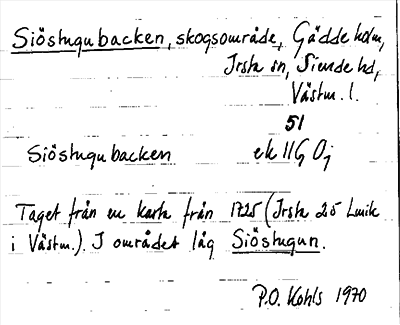 Siöstugubacken, skogsområde, Gäddeholm,
Irsta sn, Siende hd,
Västm. l.
51
Siöstugubacken ek 11G 0j
Taget från en karta från 1725 (Irsta 25 Lmtk
i Västm.). I området låg Siöstugun.
P.O. Kohls 1970